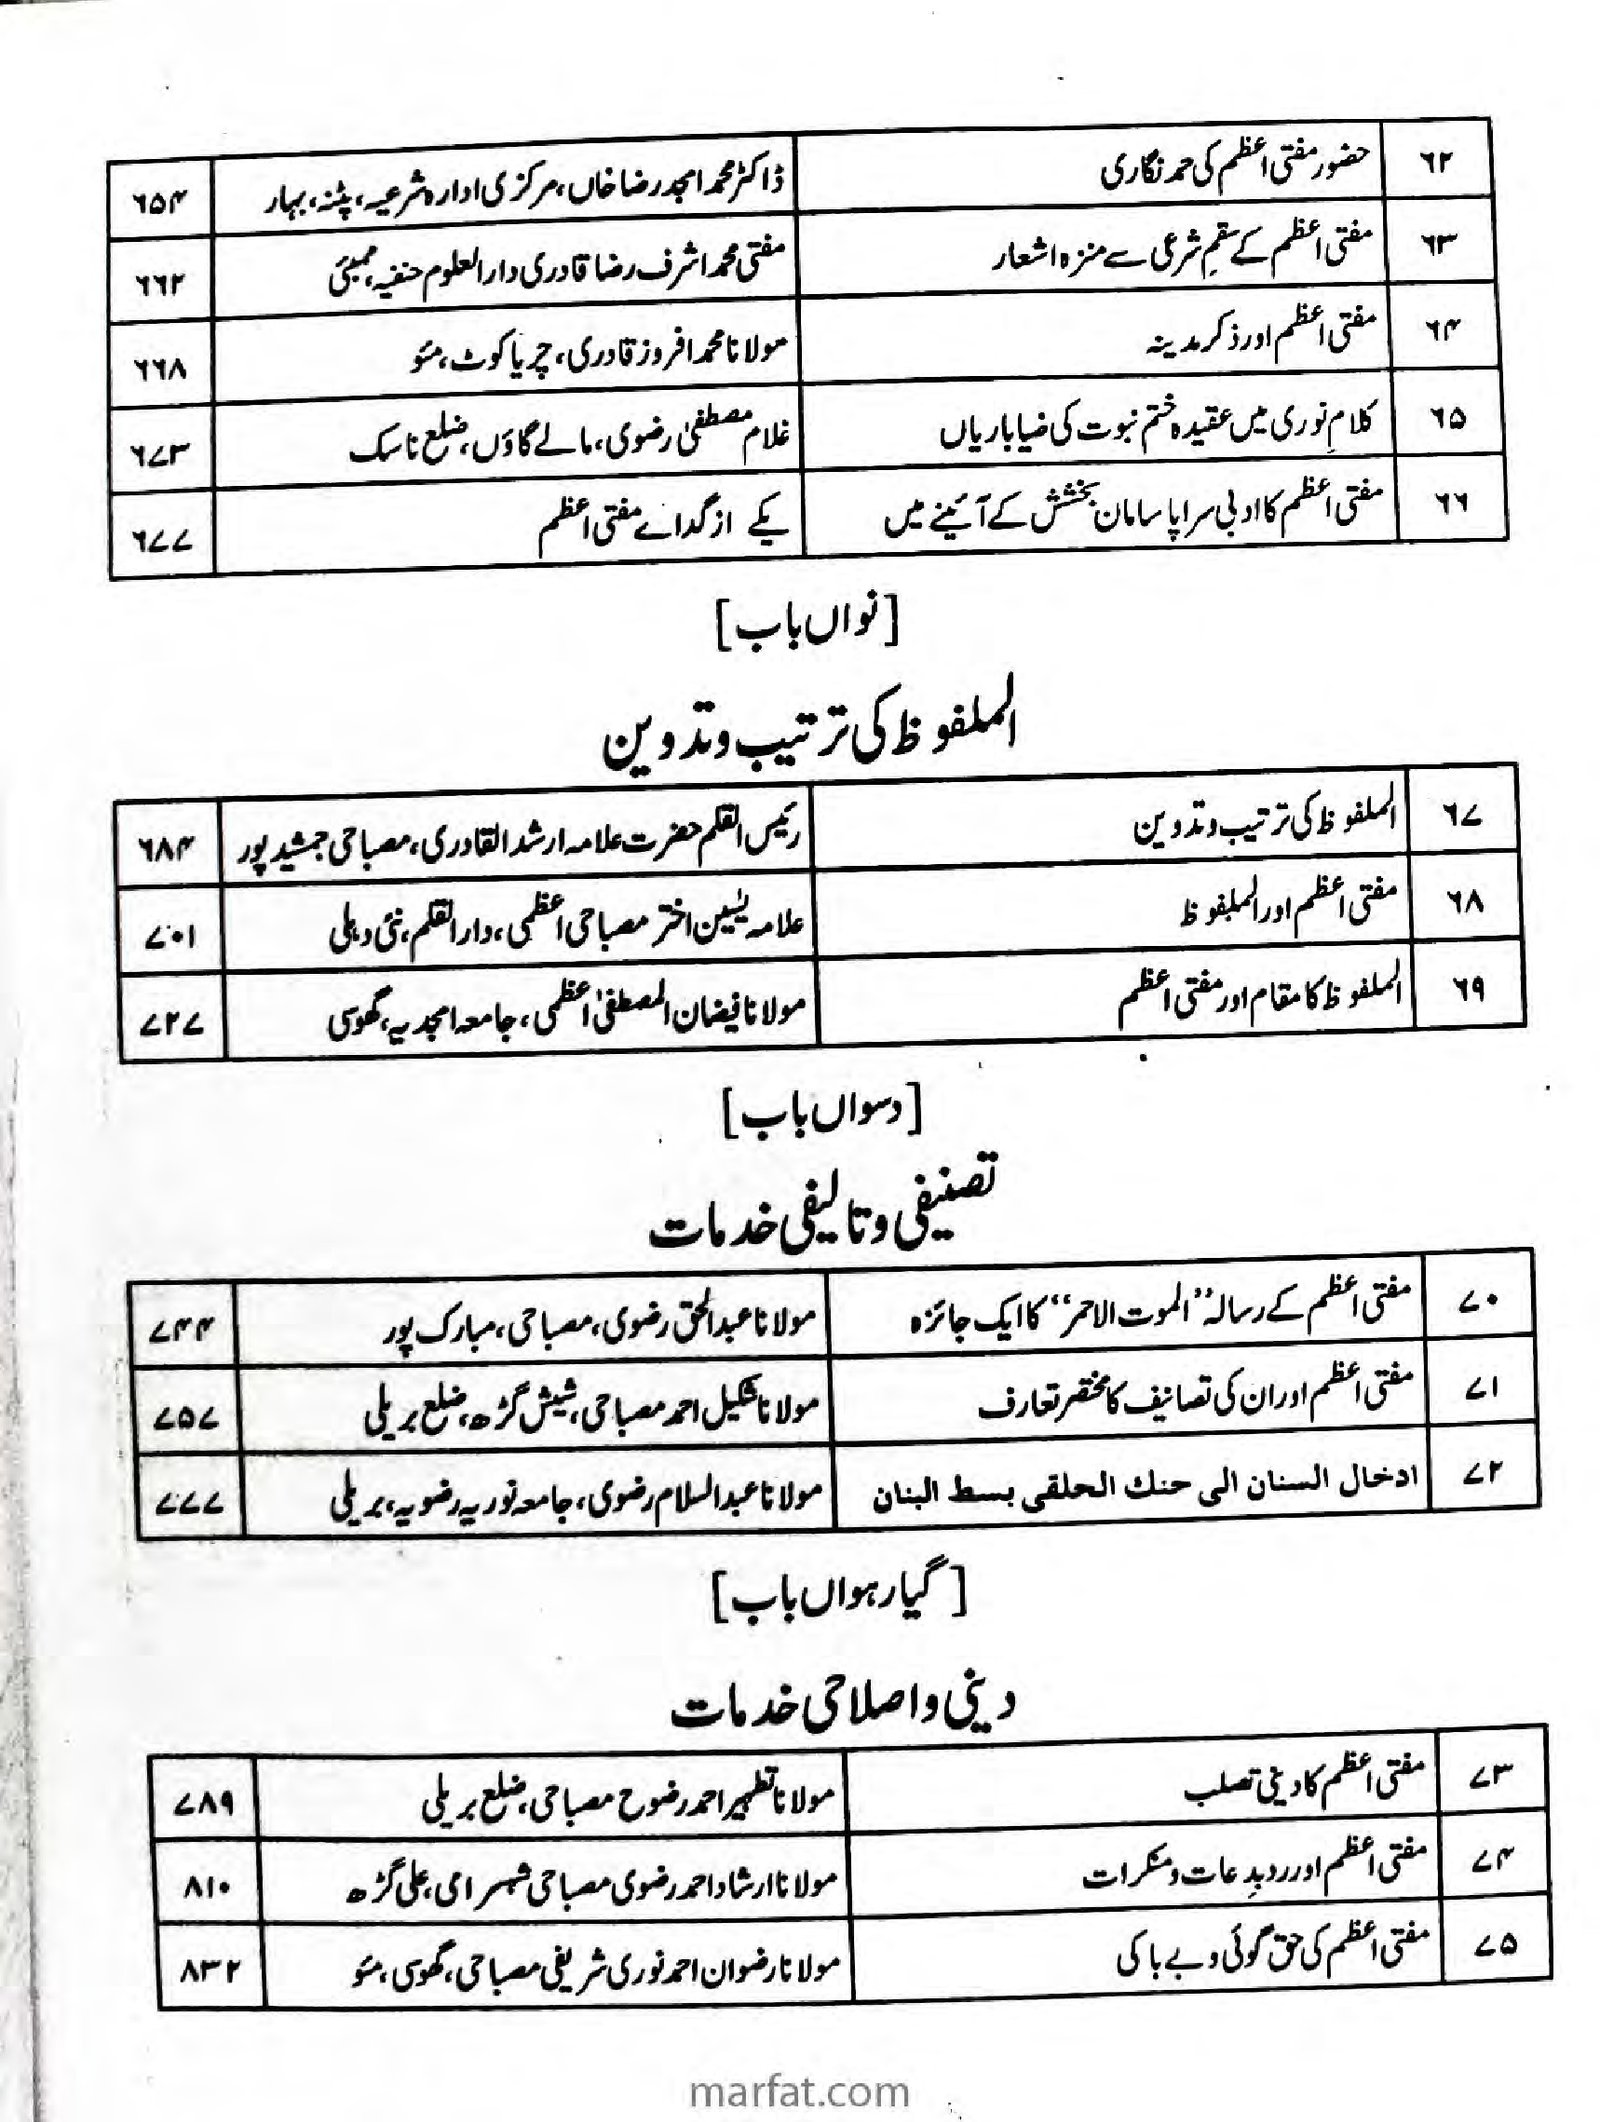 ۶۲ حضور مفتی اعظم کی حمد نگاری ڈاکٹر محمد امجد رضا خاں، مرکزی ادارہ شرعیہ، پٹنہ، بہار ۶۵۴
۶۳ مفتی اعظم کے سقمِ شرعی سے منزہ اشعار مفتی محمد اشرف رضا قادری دارالعلوم حنفیہ، ممبئی ۶۶۲
۶۴ مفتی اعظم اور ذکر مدینہ مولانا محمد افروز قادری، چریا کوٹ، مئو ۶۶۸
۶۵ کلامِ نوری میں عقیدہ ختم نبوت کی ضیا باریاں غلام مصطفیٰ رضوی، مالے گاؤں، ضلع ناسک ۶۷۳
۶۶ مفتی اعظم کا ادبی سراپا سامان بخشش کے آئینے میں یکے از گداے مفتی اعظم ۶۷۷
[نواں باب]
الملفوظ کی ترتیب و تدوین
۶۷ الملفوظ کی ترتیب و تدوین رئیس القلم حضرت علامہ ارشد القادری، مصباحی جمشید پور ۶۸۴
۶۸ مفتی اعظم اور الملفوظ علامہ یٰسین اختر مصباحی اعظمی، دارالقلم، نئی دہلی ۷۰۱
۶۹ الملفوظ کا مقام اور مفتی اعظم مولانا فیضان المصطفیٰ اعظمی، جامعہ امجدیہ، گھوسی ۷۲۷
[دسواں باب]
تصنیفی و تالیفی خدمات
۷۰ مفتی اعظم کے رسالہ ”الموت الاحمر“ کا ایک جائزہ مولانا عبدالحق رضوی، مصباحی، مبارک پور ۷۴۴
۷۱ مفتی اعظم اور ان کی تصانیف کا مختصر تعارف مولانا شکیل احمد مصباحی، شیش گڑھ، ضلع بریلی ۷۵۷
۷۲ ادخال السنان الی حنك الحلقی بسط البنان مولانا عبدالسلام رضوی، جامعہ نوریہ رضویہ، بریلی ۷۷۷
[گیارہواں باب]
دینی و اصلاحی خدمات
۷۳ مفتی اعظم کا دینی تصلب مولانا تطہیر احمد رضوح مصباحی، ضلع بریلی ۷۸۹
۷۴ مفتی اعظم اور رد بدِعات و منکرات مولانا ارشاد احمد رضوی مصباحی شہسرامی، علی گڑھ ۸۱۰
۷۵ مفتی اعظم کی حق گوئی و بے باکی مولانا رضوان احمد نوری شریفی مصباحی، گھوسی، مئو ۸۳۲
marfat.com